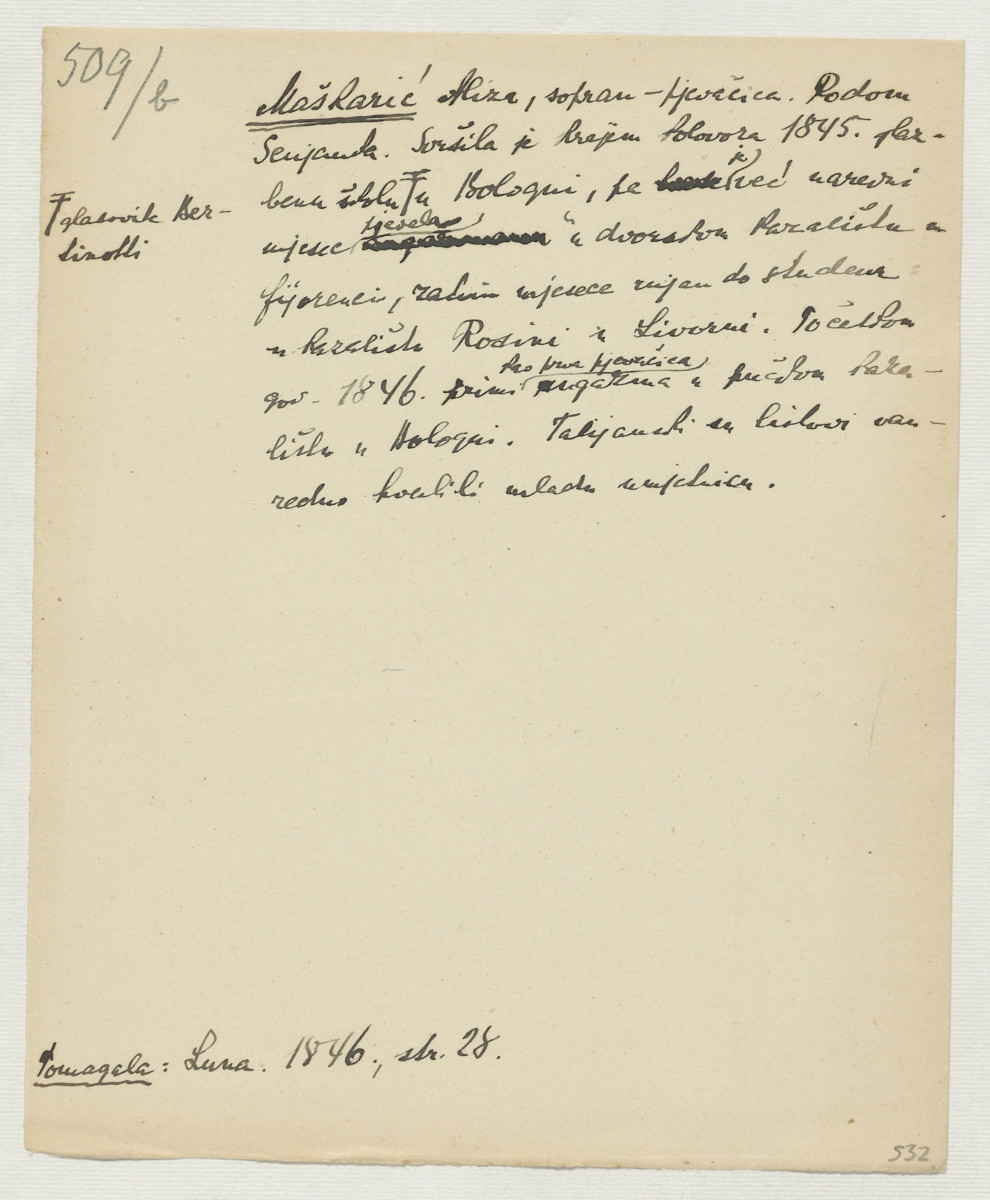 509/b
Maškarić Aliza, sopran-pjevačica. Rodom
Senjanka. Svršila je krajem kolovoza 1845. glaz-
benu školu Ŧ u Bologni, pa je već naredni
Ŧ glasovite Ber-
tinotti
mjesec pjevala u dvorskom kazalištu u
Fijorenci, zatim mjesece rujan do studena
u kazalištu Rosini u Livorni. Početkom
god. 1846. primi kao prva pjevačica angažma u pučkom kaza-
lištu u Bologni. Talijanski su listovi van-
redno hvalili mladu umjetnicu.
Pomagala: Luna. 1846., str. 28.
532